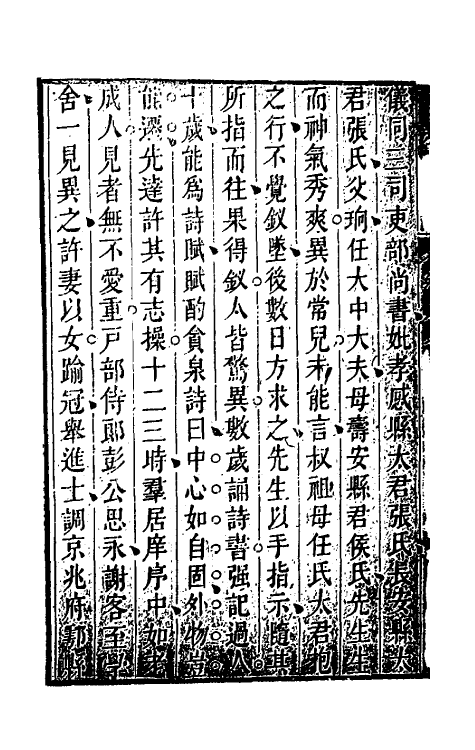 儀同三司吏部尚書妣孝感縣太君張氏長安縣太
君張氏父珦任大中大夫母壽安縣君侯氏先生生
而神氣秀爽異於常兒未能言叔祖母任氏太君抱
之行不覺釵墜後數日方求之先生以手指示隨其
所指而往果得釵人皆驚異數歲誦詩書强記過人
十歲能爲詩賦賦酌貪泉詩曰中心如自固外物豈
能遷先達許其有志操十二三時羣居庠序中如老
成人見者無不愛重戸部侍郎彭公思永謝客至學
舍一見異之許妻以女踰冠舉進士調京兆府鄠縣